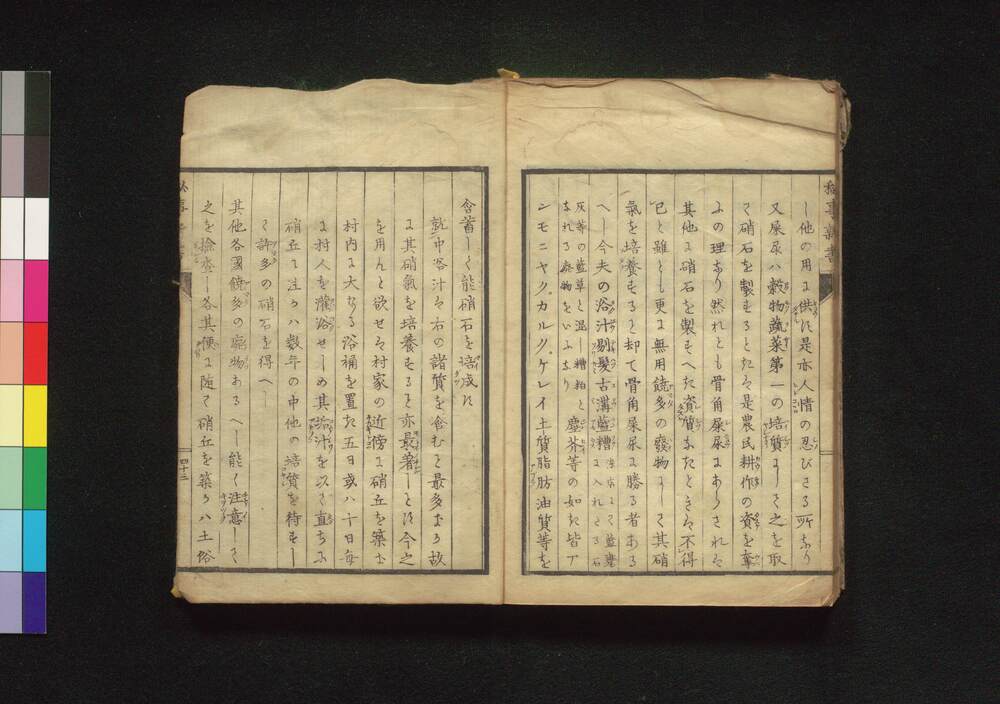 し他の用に供は是亦人情の忍びさる所なり
又屎尿ハ穀物蔬菜第一の培質にして之を取
て硝石を製するときは是農民耕作の資を奪
ふの理なり然れとも骨角屎尿にあらされは
其他に硝石を製すへた資質なたときは不得
已と雖とも更に無用饒多の廢物にして其硝
氣を培養するを却て骨角屎尿に勝る者ある
へし今夫の浴汁剔髮古溝藍糟に入れたる石
灰等の藍草と混し糟粕と
なれる廢物をいふなり 塵芥等の如き皆ア
ンモニヤグカルグケレイ土質脂肪油質等を
含蓄して能硝石を培成す
就中浴汁は右の諸質を含むを最多なる故
に其硝氣を培養するを亦最著しとす今之
を用んと欲せは村家の近傍に硝丘を築き
村内に大なる浴桶を置た五日或ハ十日毎
に村人を灌浴せしめ其浴汁を次て直ちに
硝丘に注かハ數年の中他の培質を待すし
て許多の硝石を得へし
其他各國饒多の廢物あるへし能く注意して
之を撿查し各其便に随て硝丘を築かハ土俗
四十三